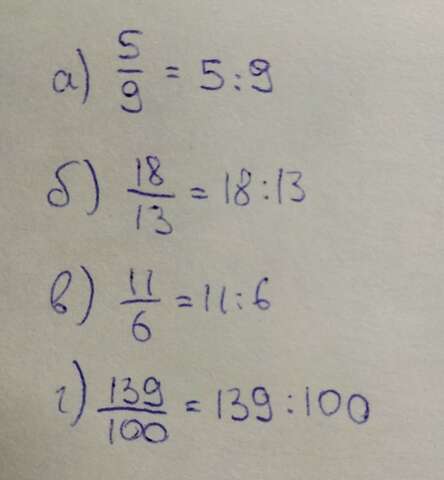 а) 5/9 = 5:9
б) 18/13 = 18:13
в) 11/6 = 11:6
г) 139/100 = 139:100